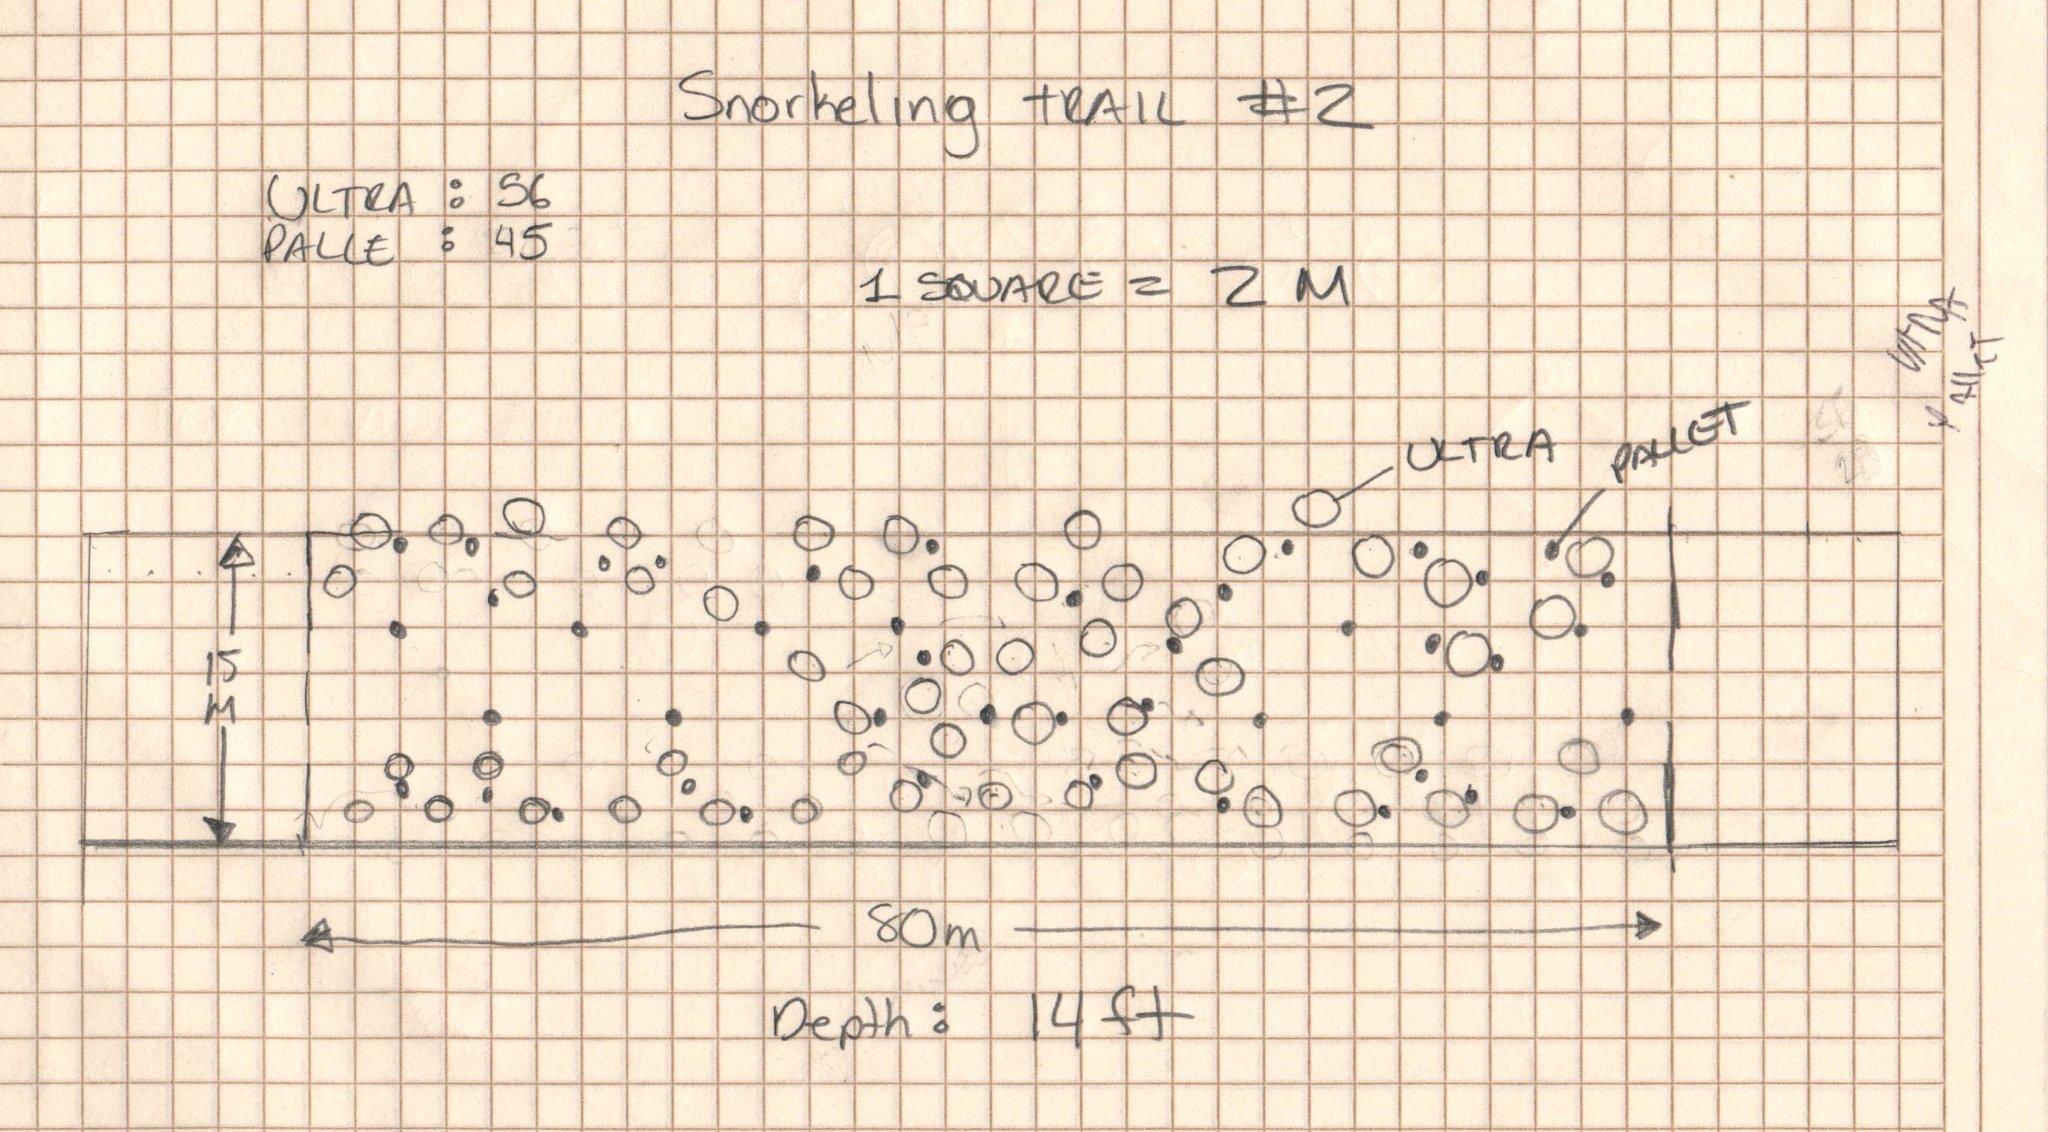 Snorkeling TRAIL #2
ULTRA : 56
PALLE : 45
1 SQUARE = 2 M
ULTRA
PALLET
ULTRA
PALLET
15
M
80m
Depth: 14 ft